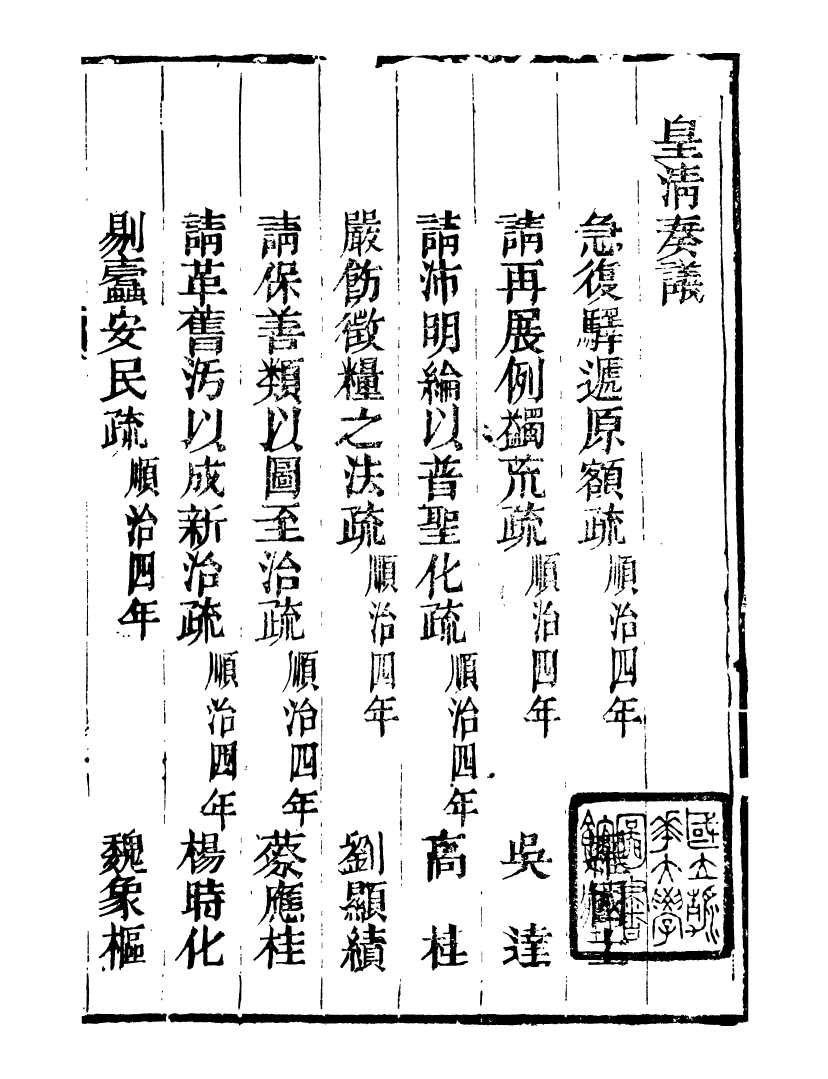 皇清奏議
急復驛遞原額疏 順治四年
請再展例蠲荒疏 順治四年 吳達
請沛明綸以普聖化疏 順治四年 高桂
嚴飭徵糧之法疏 順治四年 劉顯績
請保善類以圖至治疏 順治四年 蔡應桂
請革舊汚以成新治疏 順治四年 楊時化
剔蠹安民疏 順治四年 魏象樞
國立清華大學圖書館